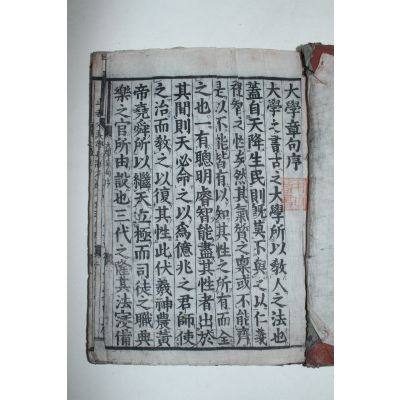 大學章句序
大學之書古之大學所以敎人之法也
蓋自天降生民則旣莫不與之以仁義
禮智之性矣然其氣質之稟或不能齊
是以不能皆有以知其性之所有而全
之也一有聰明睿智能盡其性者出於
其閒則天必命之以爲億兆之君師使
之治而敎之以復其性此伏羲神農黃
帝堯舜所以繼天立極而司徒之職典
樂之官所由設也三代之隆其法寖備